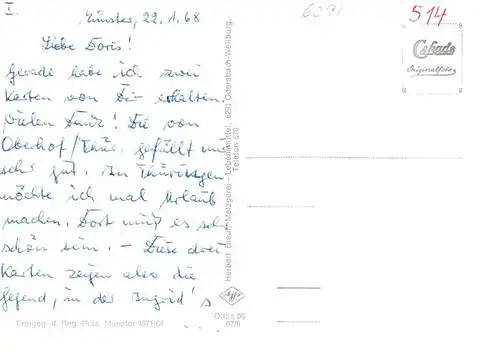 I.
Münster, 22.1.68
Liebe Doris!
Gerade habe ich zwei
Karten von Dir erhalten.
Vielen Dank! Die von
Oberhof/Thür. gefällt mir
sehr gut. In Thüringen
möchte ich mal Urlaub
machen. Dort muß es sehr
schön sein. – Diese drei
Karten zeigen also die
Gegend, in der Ingrid's
Freigeg. d. Reg.-Präs. Münster 4671/64
Herbert Bleul, Metzgerei - Lebensmittel, 6291 Odersbach-Weilburg,
Telefon 670
Agfa
67/5
6291
514
Cekade
Originalfoto